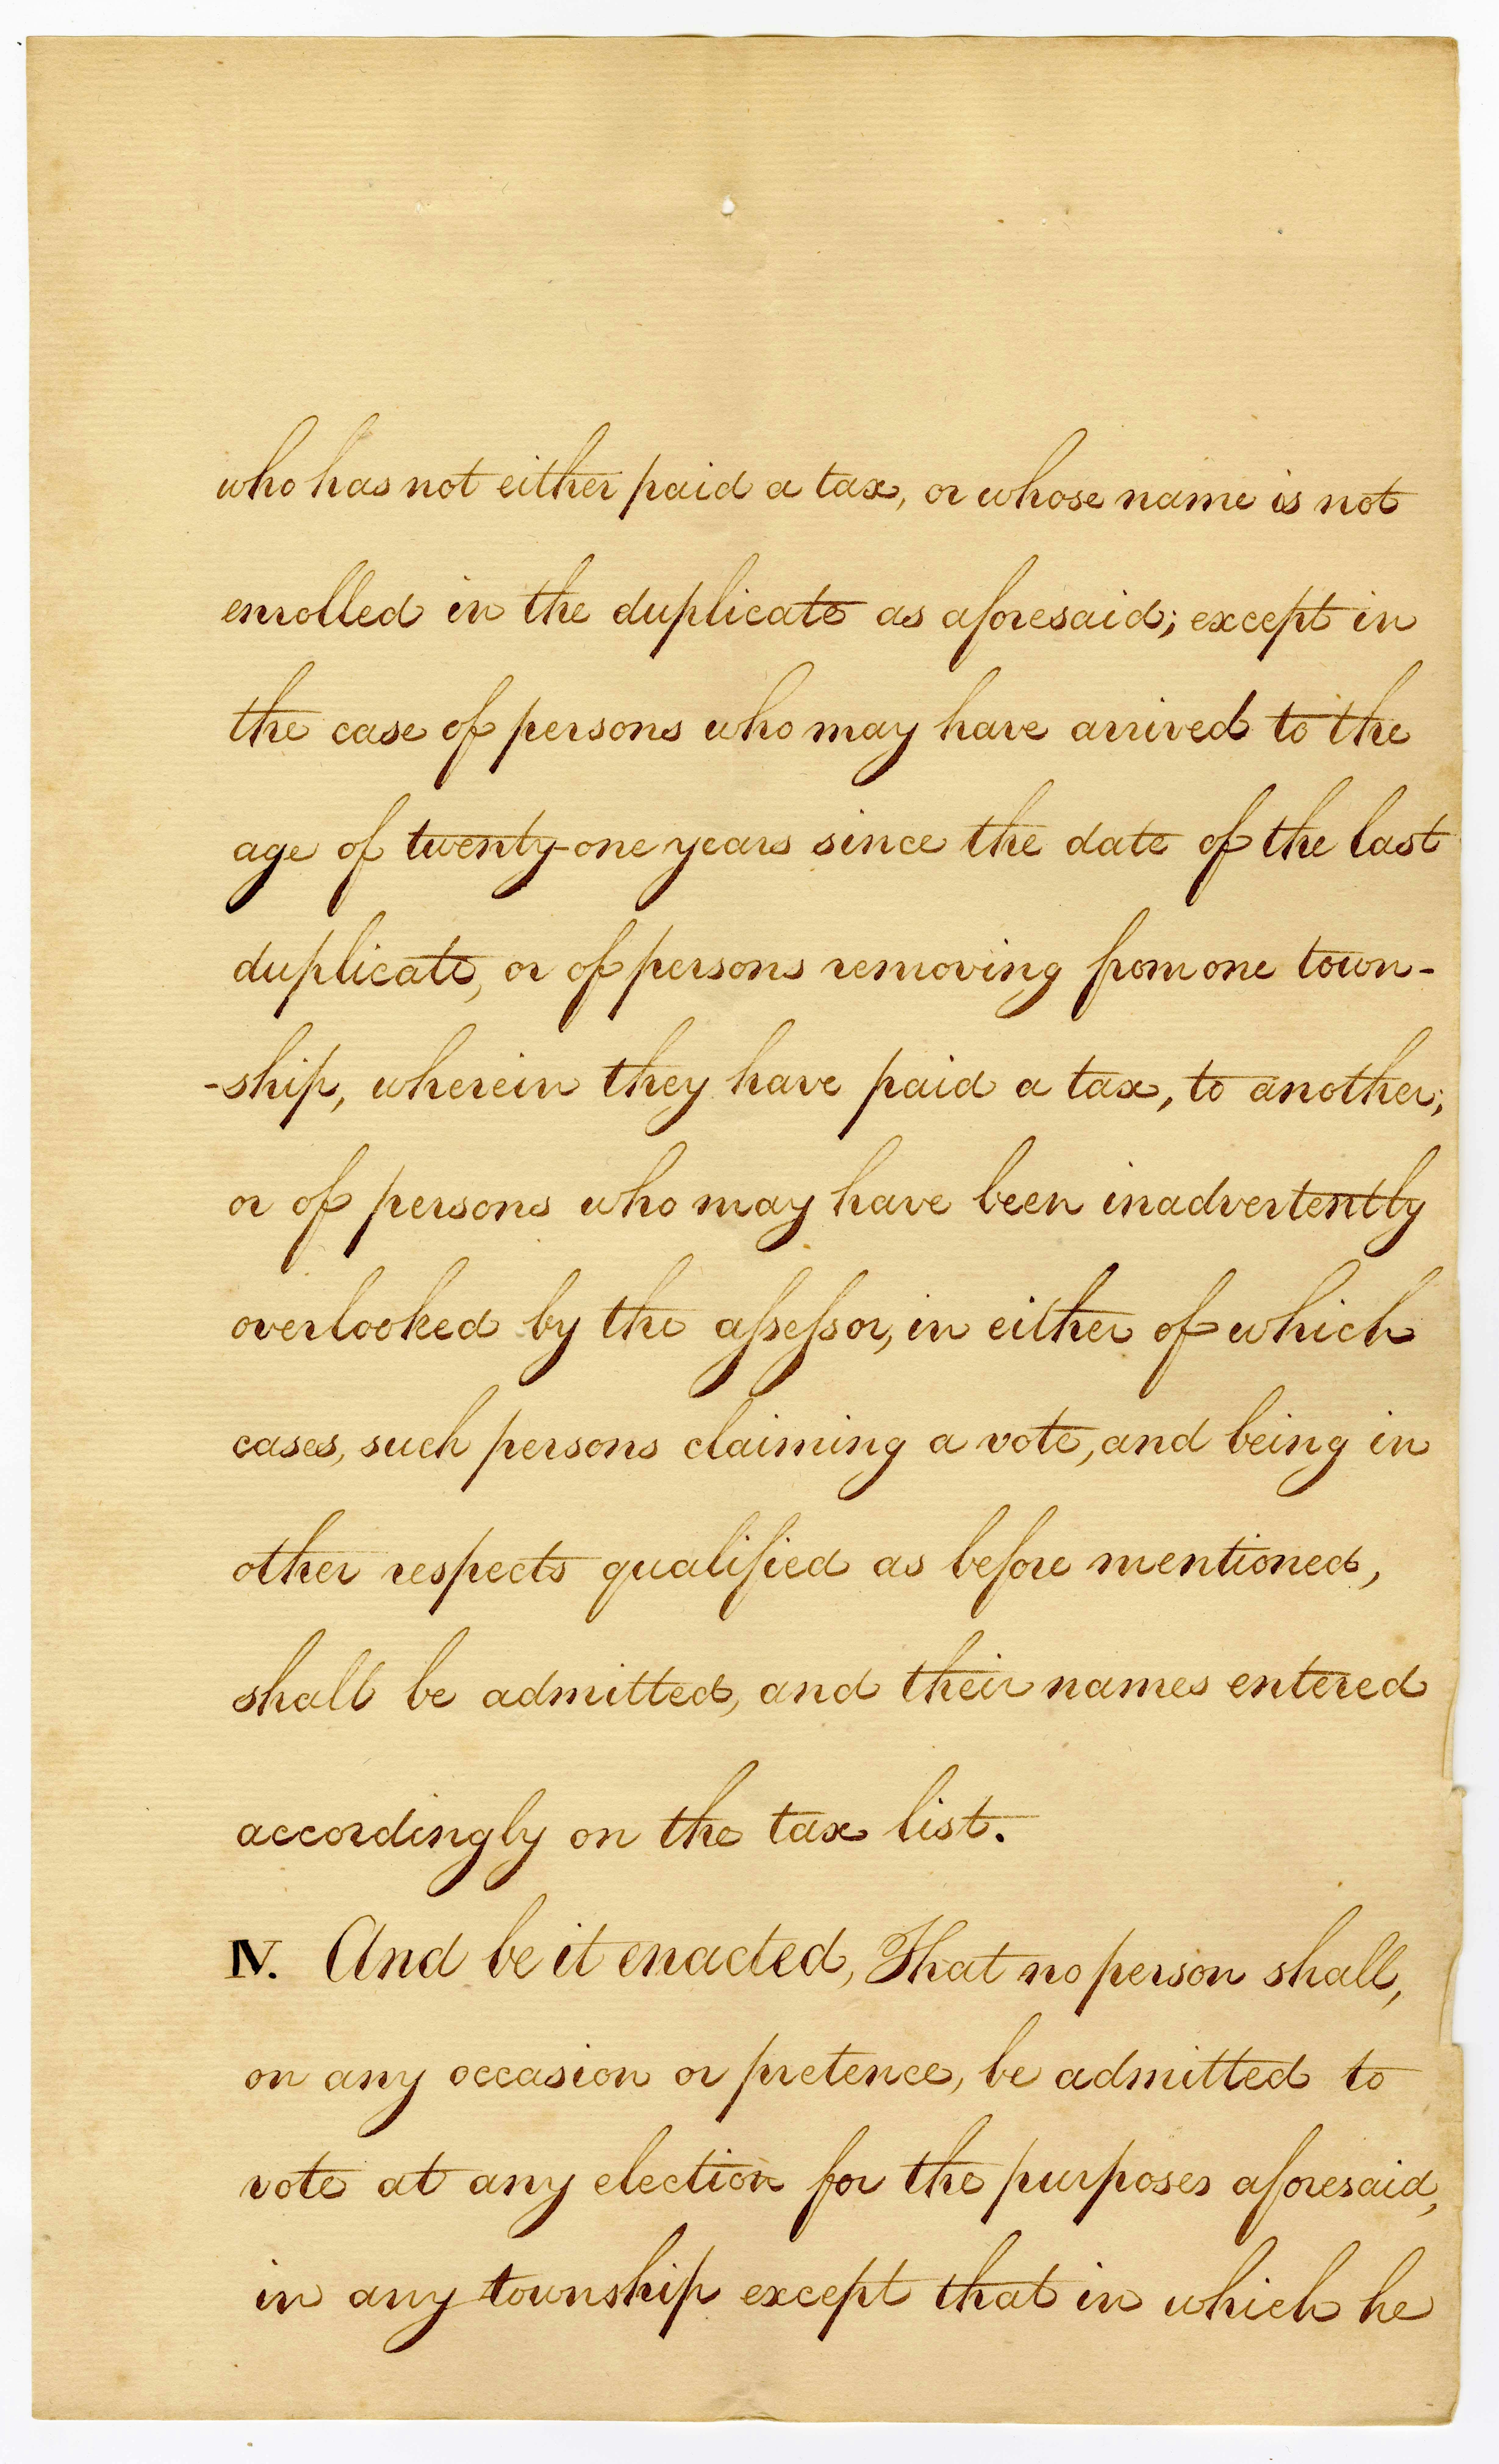 who has not either paid a tax, or whose name is not
enrolled in the duplicate as aforesaid; except in
the case of persons who may have arrived to the
age of twenty-one years since the date of the last
duplicate, or of persons removing from one town-
-ship, wherein they have paid a tax, to another;
or of persons who may have been inadvertently
overlooked by the aſseſsor, in either of which
cases, such persons claiming a vote, and being in
other respects qualified as before mentioned,
shall be admitted, and their names entered
accordingly on the tax list.
IV. And be it enacted, That no person shall,
on any occasion or pretence, be admitted to
vote at any election for the purposes aforesaid,
in any township except that in which he